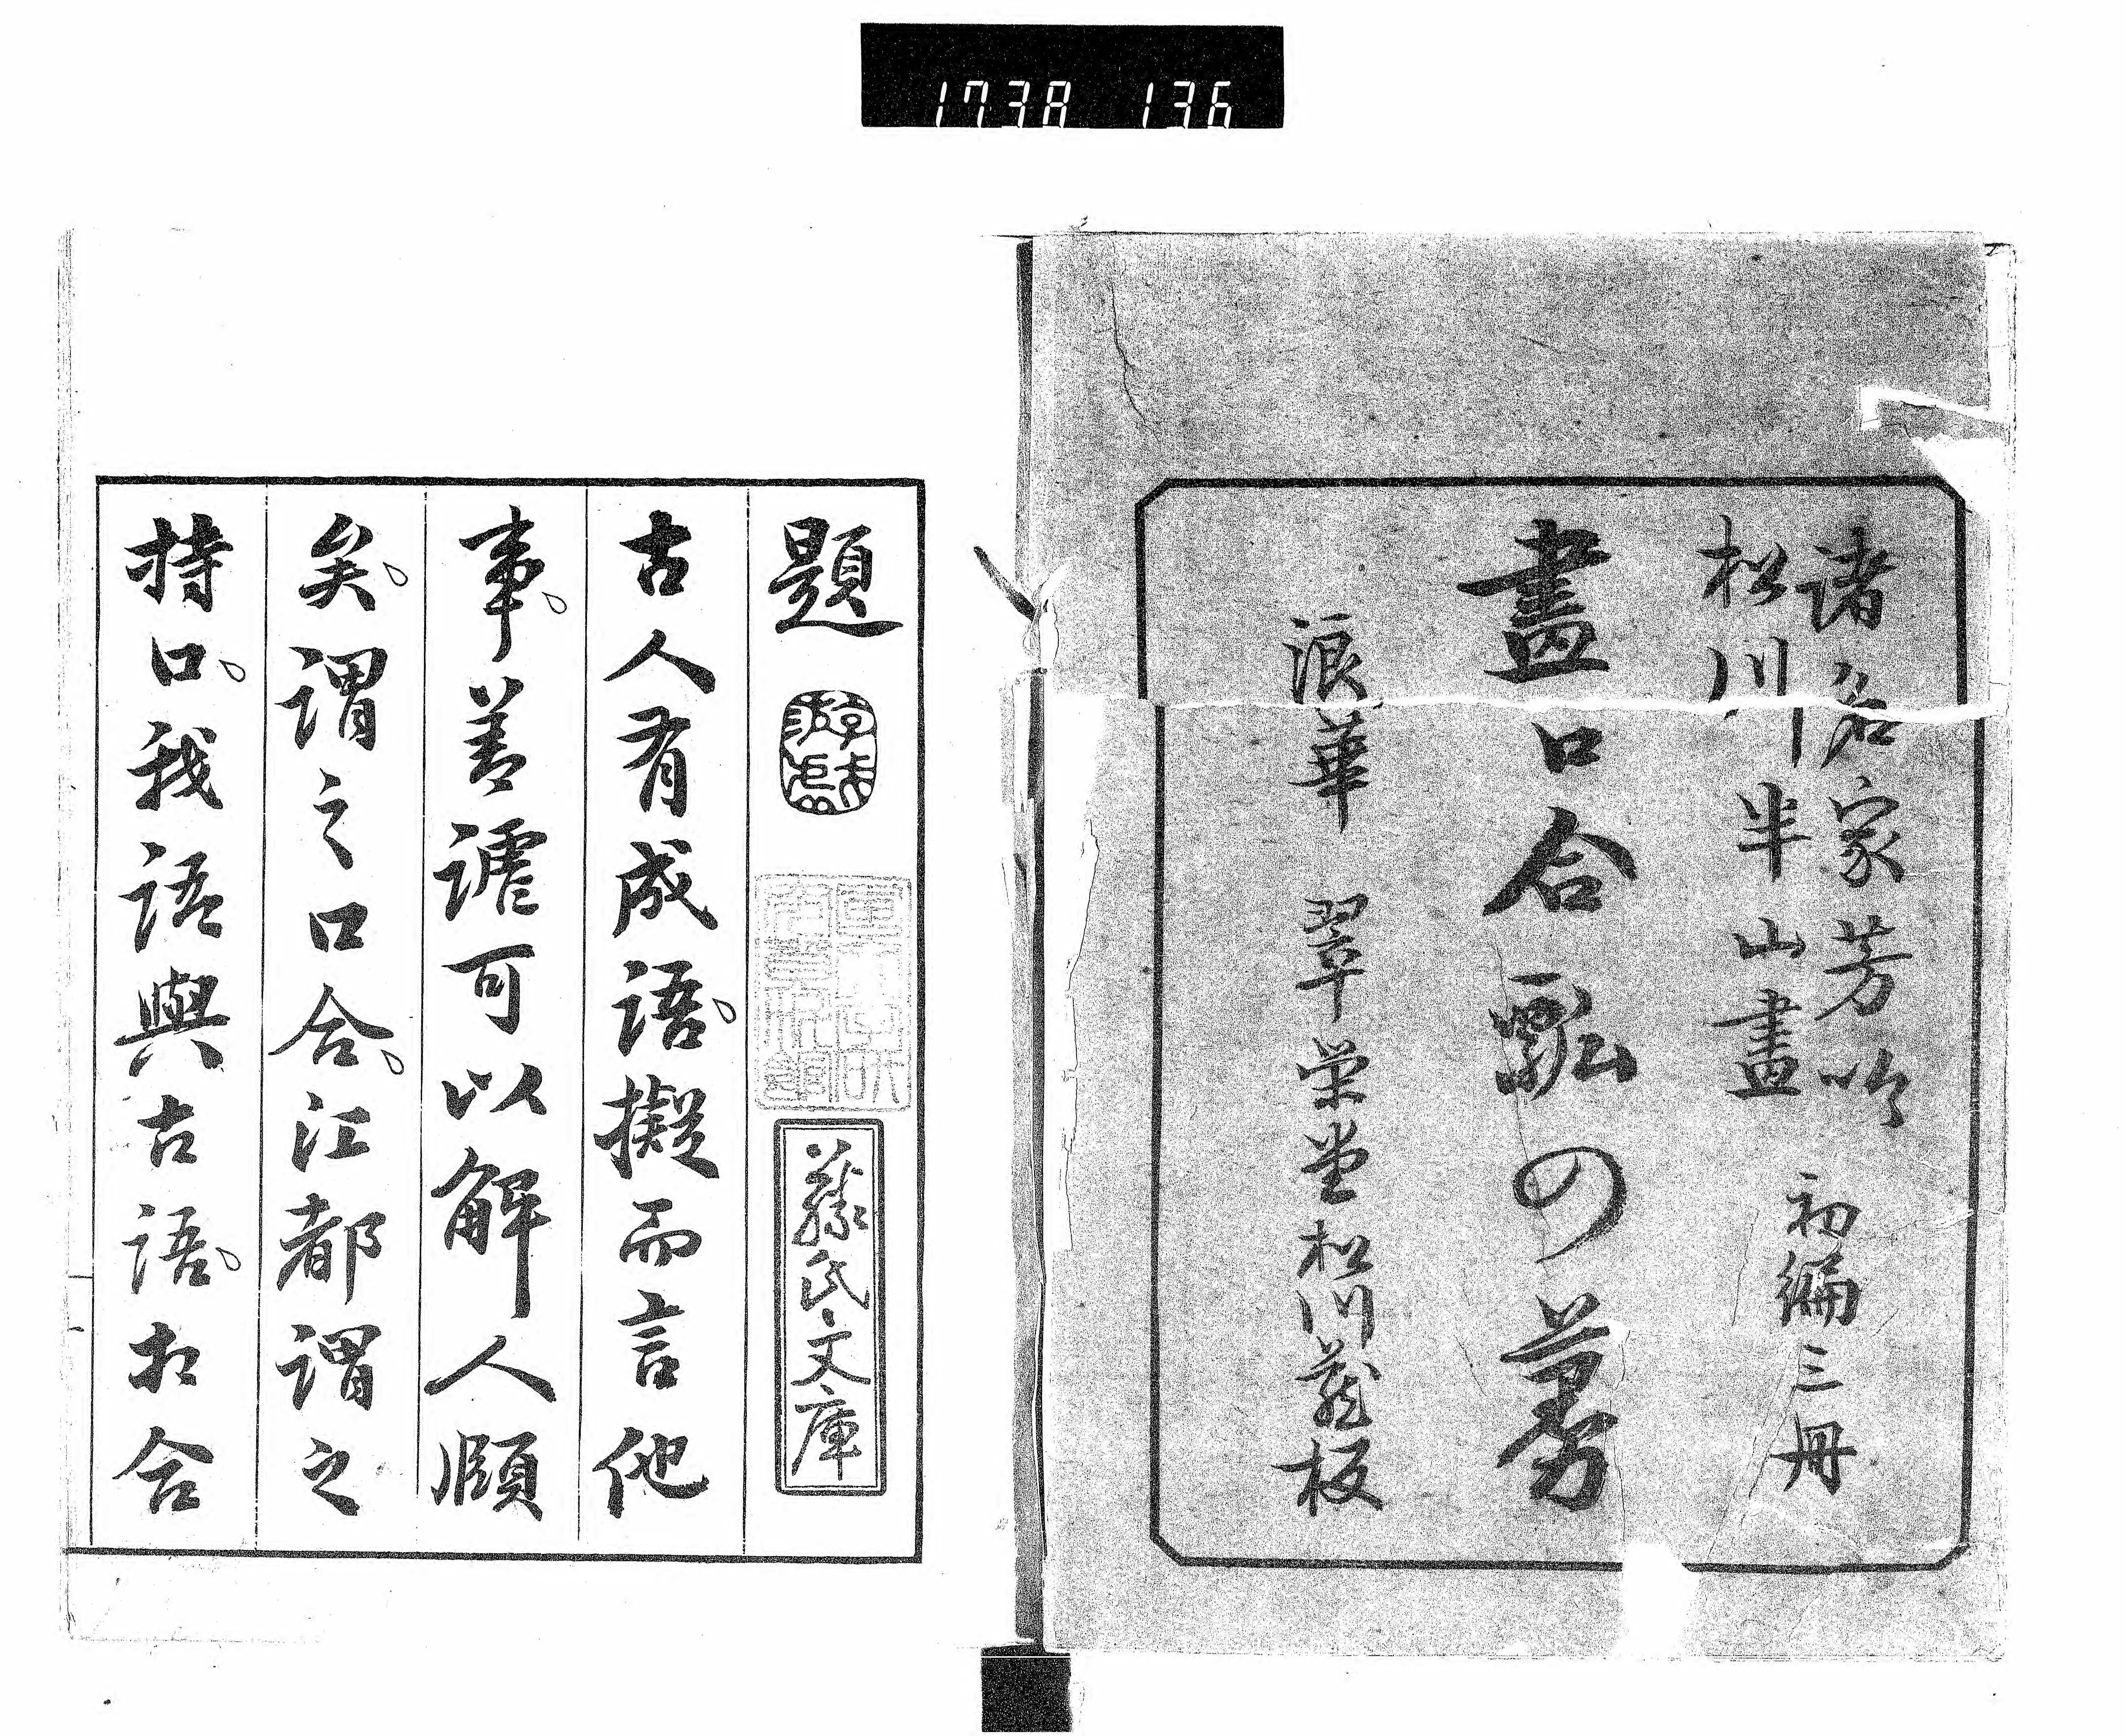 1738 136
諸名家芳吟
松川半山畫
初編三冊
畫口合瓢の蔓
浪華 翠栄堂松川蔵板
題
藤氏文庫
古人有成語擬而言他
事善謔可以解人頤
矣謂之口合江都謂之
持口我語與古語相合